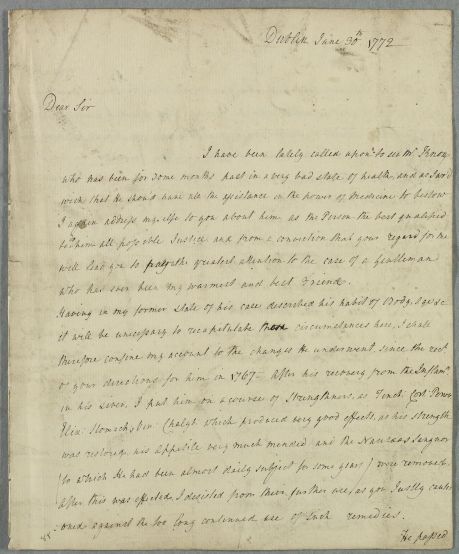 Dublin June 30th 1772
Dear Sir
I have been lately called upon to see Mr
who has been for some months past in a very bad state of health, and as I am'd
wish that He should have all the assistance in the power of Medicine to bestow
I again address myself to you about him as the Person the best qualified
to him all possible Justice and from a conviction that your regard for me
will lead you to pay the greatest attention to the case of a Gentleman
who has ever been my warmest and best Friend.
Having in my former state of his case described his habit of Body, Age &c
it will be unnecessary to recapitulate these circumstances here, I shall
therefore confine my account to the changes He underwent since the rect
of your directions for him in 1767 - After his recovery from the Inflamn
in his Liver, I put him on a course of Strengthners, as Tinct. Cort. Peruv
Elix. Stomich, Vin. Chalyb. which produced very good effects, as his strength
was restored, his appetite very much mended and the Nauseas, Languor
(to which He had been almost daily subject for some years) were removed.
After this was effected, I desisted from their further use, as you Justly cauti-
oned against the too long continued use of such remedies.
He passed